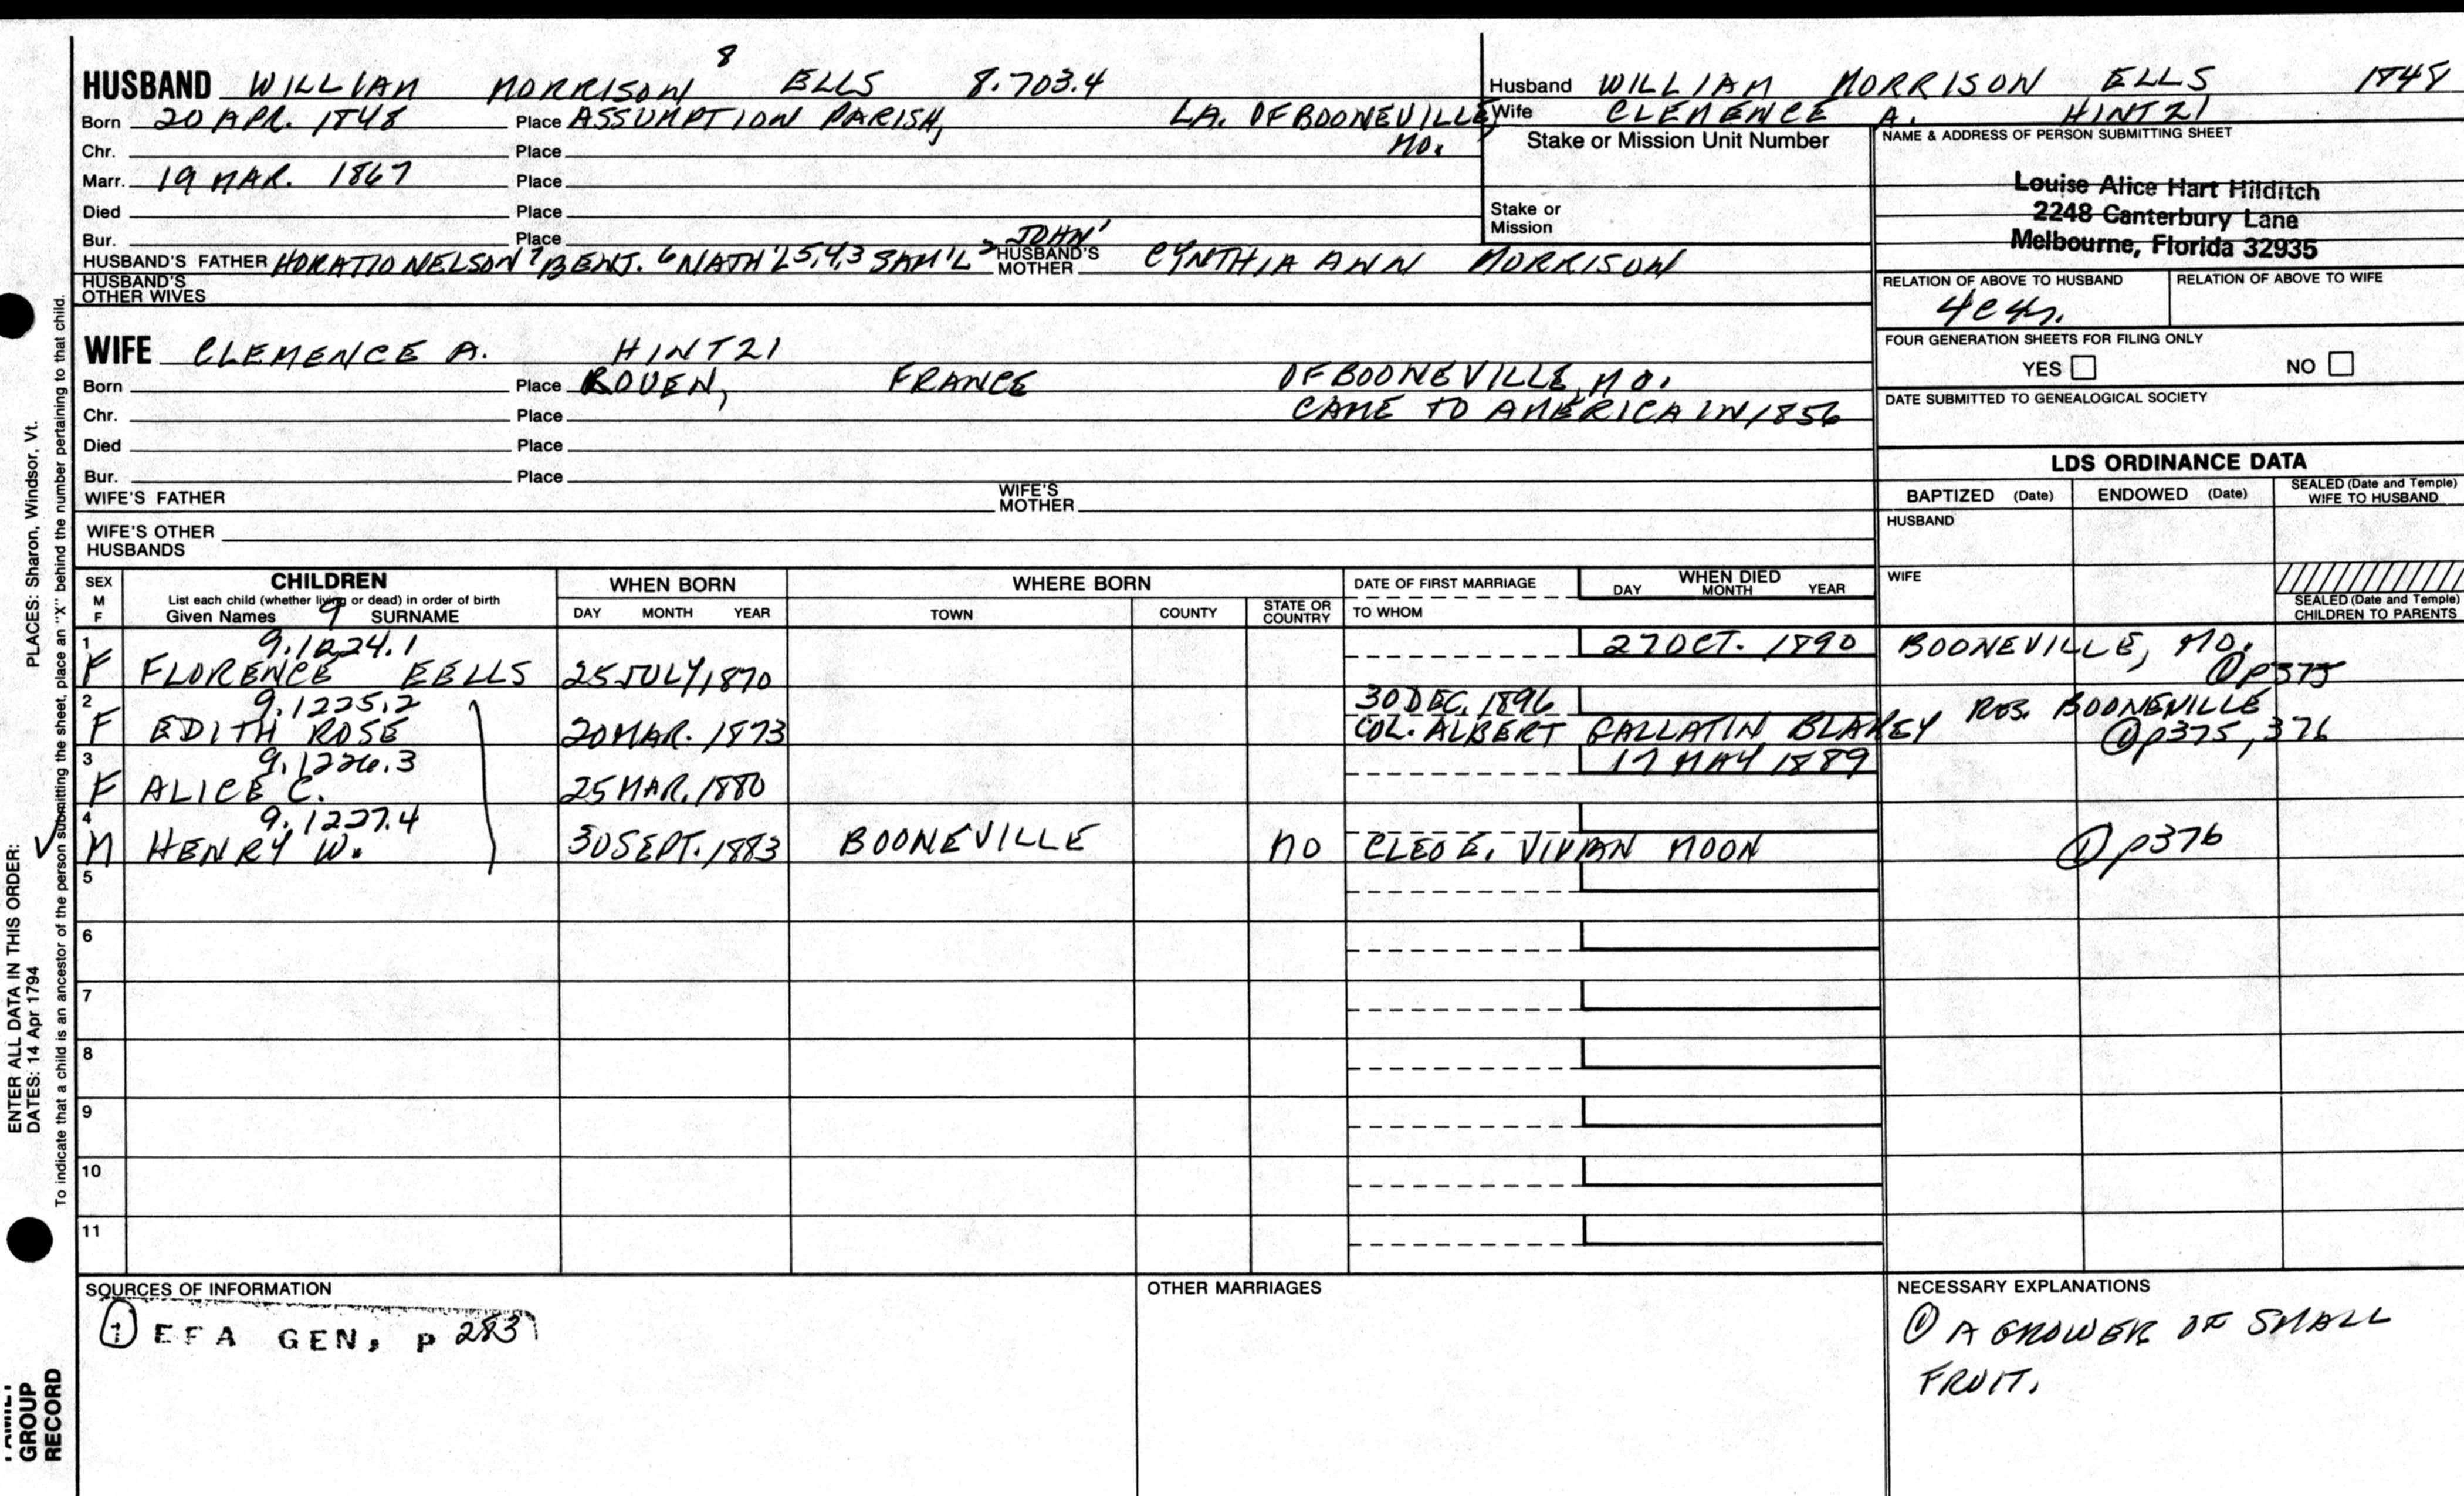 8
HUSBAND WILLIAM MORRISON ELLS 8.703.4
Born 20 APR. 1848 Place ASSUMPTION PARISH, LA. OF BOONEVILLE,
Chr. Place MO.
Marr. 19 MAR. 1867 Place
Died Place
Bur. Place JOHN1
HUSBAND'S FATHER HORATIO NELSON7 BENJ.6 NATH'L5,4,3 SAM'L2 HUSBAND'S MOTHER CYNTHIA ANN MORRISON
HUSBAND'S OTHER WIVES
Husband WILLIAM MORRISON ELLS 1848
Wife CLEMENCE A. HINTZI
Stake or Mission Unit Number
Stake or
Mission
NAME & ADDRESS OF PERSON SUBMITTING SHEET
Louise Alice Hart Hilditch
2248 Canterbury Lane
Melbourne, Florida 32935
RELATION OF ABOVE TO HUSBAND RELATION OF ABOVE TO WIFE
FOUR GENERATION SHEETS FOR FILING ONLY
YES NO
DATE SUBMITTED TO GENEALOGICAL SOCIETY
WIFE CLEMENCE A. HINTZI
Born Place ROUEN, FRANCE OF BOONEVILLE, MO.
Chr. Place CAME TO AMERICA IN 1856
Died Place
Bur. Place
WIFE'S FATHER WIFE'S MOTHER
WIFE'S OTHER
HUSBANDS
LDS ORDINANCE DATA
BAPTIZED (Date) ENDOWED (Date) SEALED (Date and Temple) WIFE TO HUSBAND
HUSBAND
WIFE
SEALED (Date and Temple) CHILDREN TO PARENTS
SEX M F CHILDREN WHEN BORN WHERE BORN DATE OF FIRST MARRIAGE WHEN DIED
List each child (whether living or dead) in order of birth
Given Names 9 SURNAME DAY MONTH YEAR TOWN COUNTY STATE OR COUNTRY TO WHOM DAY MONTH YEAR
1 9.1224.1 27 OCT. 1890 BOONEVILLE, MO.
F FLORENCE EELLS 25 JULY, 1870 @p375
2 9.1225.2 30 DEC. 1896 RES. BOONEVILLE
F EDITH ROSE 20 MAR. 1873 COL. ALBERT GALLATIN BLAKEY @p375, 376
3 9.1226.3 17 MAY 1889
F ALICE C. 25 MAR. 1880
4 9.1227.4
M HENRY W. 30 SEPT. 1883 BOONEVILLE MO CLEO E. VIVIAN MOON ① p376
5
6
7
8
9
10
11
SOURCES OF INFORMATION
① EFA GEN, p 283
OTHER MARRIAGES
NECESSARY EXPLANATIONS
① A GROWER OF SMALL
FRUIT.
ENTER ALL DATA IN THIS ORDER:
DATES: 14 Apr 1794 PLACES: Sharon, Windsor, Vt.
To indicate that a child is an ancestor of the person submitting the sheet, place an "X" behind the number pertaining to that child.
GROUP
RECORD